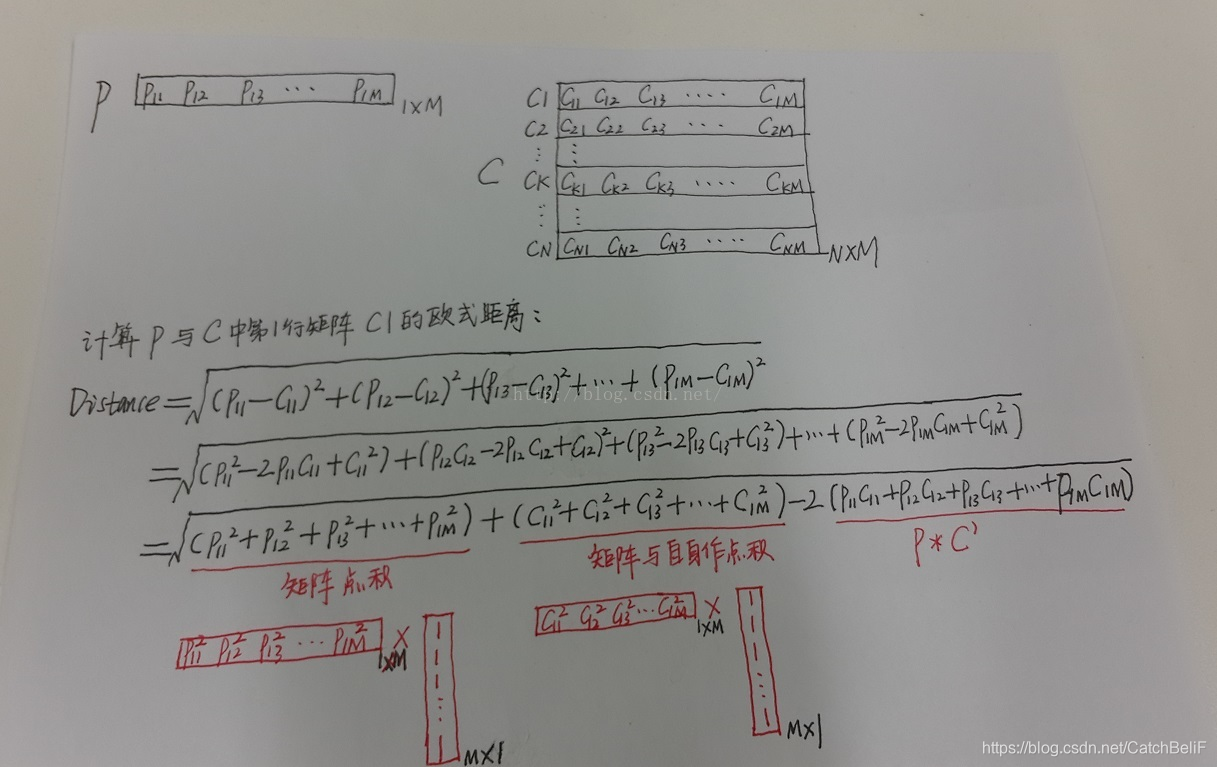 P P₁₁ P₁₂ P₁₃ ··· P₁M 1×M
C1 C₁₁ C₁₂ C₁₃ ···· C₁M
C2 C₂₁ C₂₂ C₂₃ ··· C₂M
⋮ ⋮
C CK CK₁ CK₂ CK₃ ···· CKM
⋮ ⋮
CN CN₁ CN₂ CN₃ ···· CNM N×M
计算 P 与 C 中第1行矩阵 C1 的欧式距离：
Distance=√(P₁₁-C₁₁)²+(P₁₂-C₁₂)²+(P₁₃-C₁₃)²+···+(P₁M-C₁M)²
http://blog.csdn.net/
=√(P₁₁²-2P₁₁C₁₁+C₁₁²)+(P₁₂C₁₂-2P₁₂C₁₂+C₁₂)²+(P₁₃²-2P₁₃C₁₃+C₁₃²)+···+(P₁M²-2P₁MC₁M+C₁M²)
=√(P₁₁²+P₁₂²+P₁₃²+···+P₁M²)+(C₁₁²+C₁₂²+C₁₃²+···+C₁M²)-2(P₁₁C₁₁+P₁₂C₁₂+P₁₃C₁₃+···+P₁MC₁M)
矩阵点积 矩阵与自身作点积 P*C'
P₁₁² P₁₂² P₁₃² ··· P₁M² 1×M × 1 1 1 ⋮ 1 M×1
C₁₁² C₁₂² C₁₃² ··· C₁M² 1×M × 1 1 1 ⋮ 1 M×1
https://blog.csdn.net/CatchBeliF